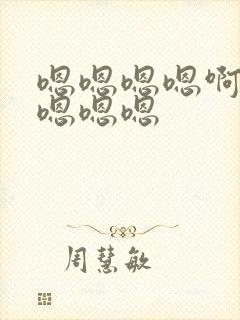 嗯嗯嗯嗯啊
嗯嗯嗯
周慧敏